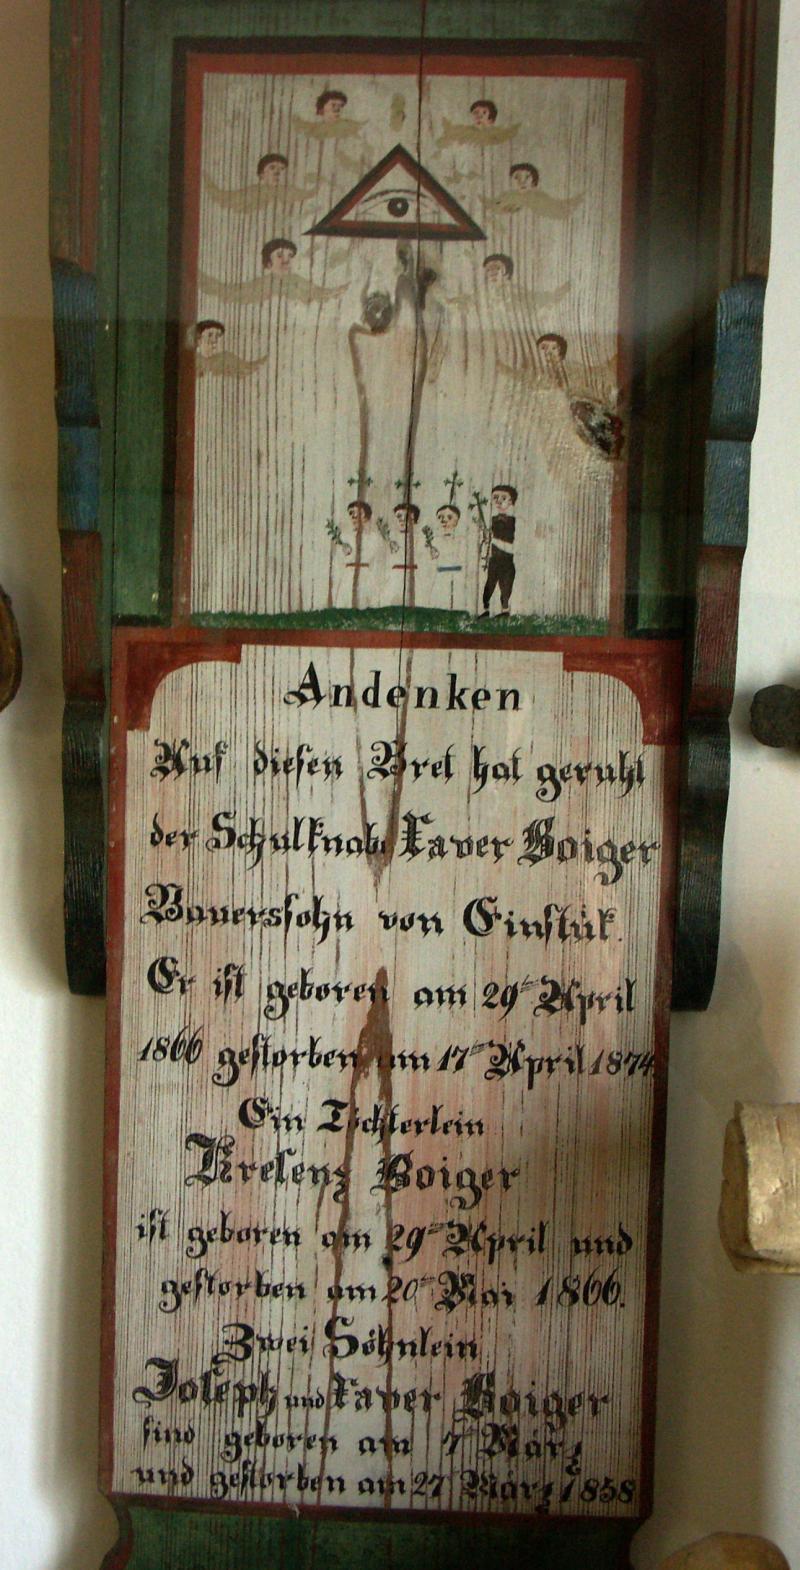 Andenken
Auf diesen Bret hat geruht
der Schulknabe Xaver Boiger
Bauerssohn von Einstük.
Er ist geboren am 29ten April
1866 gestorben am 17ten April 1874
Ein Töchterlein
Kresenz Boiger
ist geboren am 29ten April und
gestorben am 20ten Mai 1866.
Zwei Söhnlein
Joseph und Xaver Boiger
sind geboren am 7ten März
und gestorben am 27ten März 1858